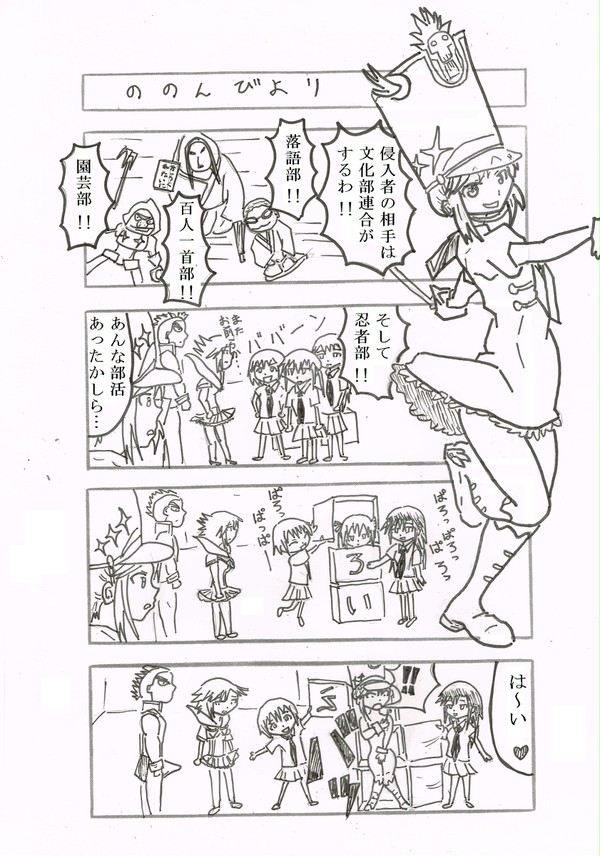 ののんびより
侵入者の相手は
文化部連合が
するわ!!
落語部!!
百人一首部!!
園芸部!!
そして
忍者部!!
ババーン
また
お前らか…
あんな部活
あったかしら…
ぱろっ
ぱろっ
ぱっぱろ
ぱろっ
ぱっぱー
ろ
い
は~い♥